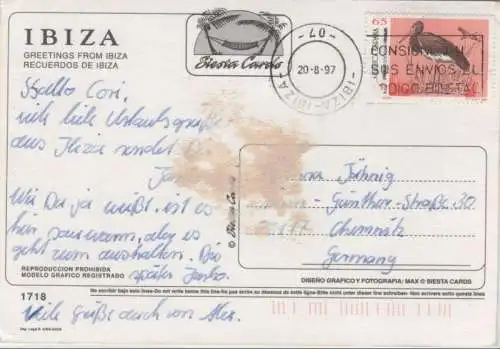 IBIZA
GREETINGS FROM IBIZA
RECUERDOS DE IBIZA
Siesta Cards
-07-
20-8-97
-IBIZA-IBIZA-
65
CONSIGNE EN
SUS ENVIOS EL
CODIGO POSTAL
Hallo Cori,
viele liebe Urlaubsgrüße
aus Ibiza sendet Dir
Wie Du ja weißt, ist es
hier warm, aber es
geht zum aushalten. Bis
später
Viele Grüße auch von Alex.
Jähnig
-Günther-Straße 30
Chemnitz
Germany
© Siesta Cards
REPRODUCCION PROHIBIDA
MODELO GRAFICO REGISTRADO
DISEÑO GRAFICO Y FOTOGRAFIA: MAX © SIESTA CARDS
1718
No escribir bajo esta línea-Do not write below this line-Ne pas écrire au dessous de cette ligne-Bitte nicht unter dieser linie schreiben- Non scrivere sotto questa linea